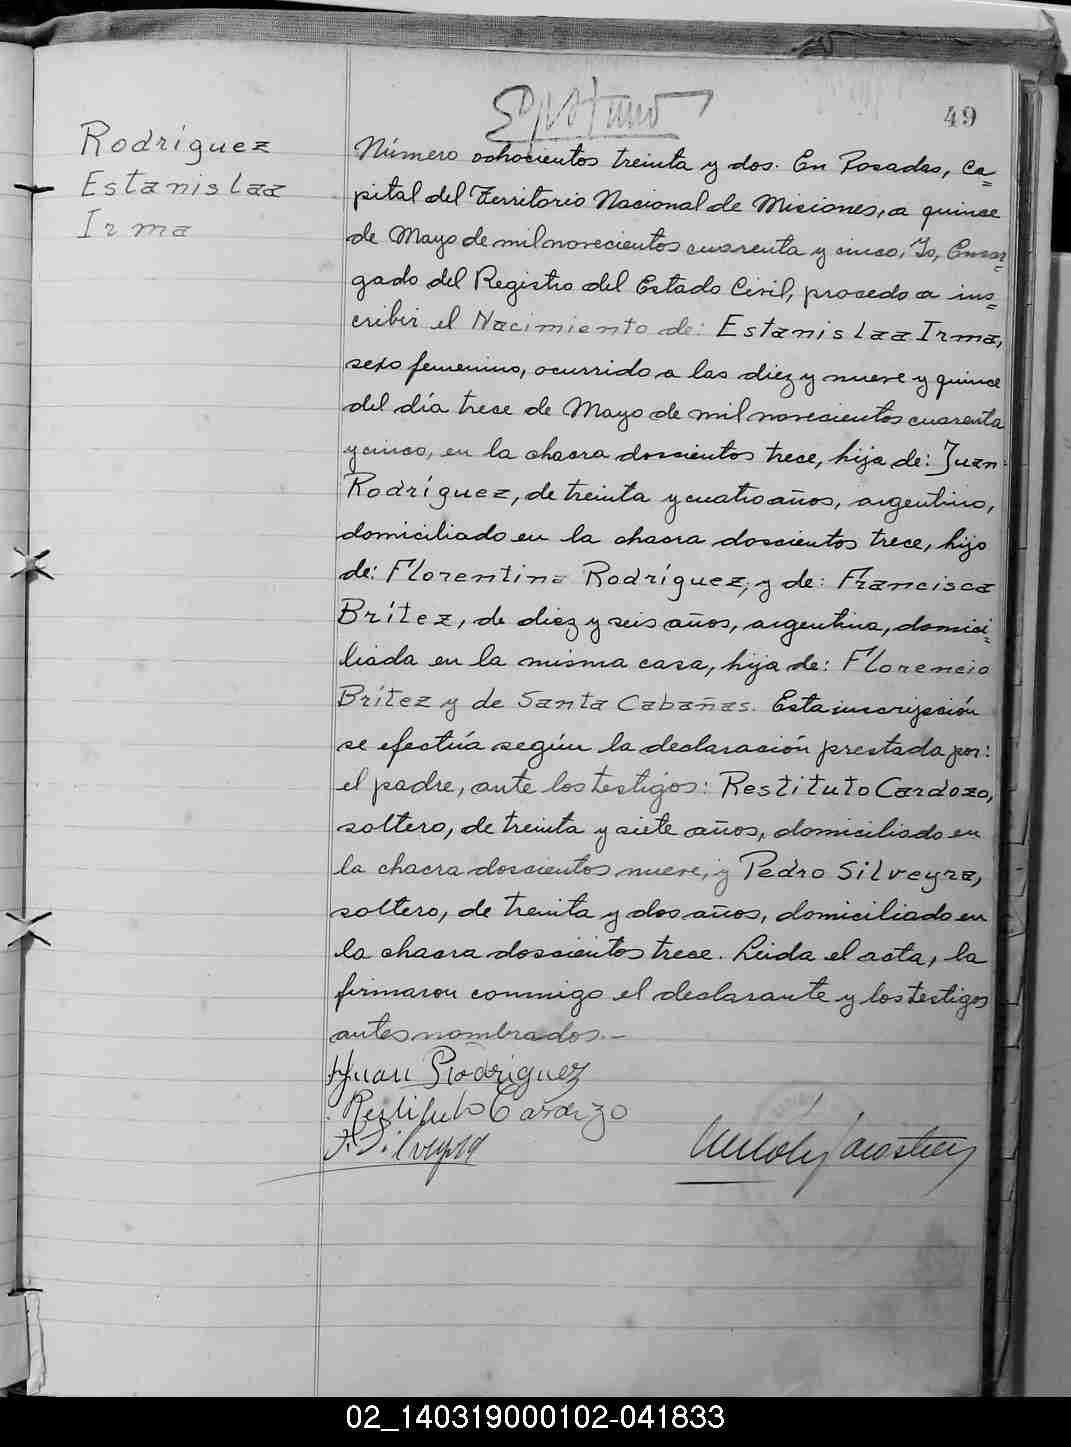 49
Rodríguez
Estanislaa
Irma
Número ochocientos treinta y dos. En Posadas, Ca=
pital del Territorio Nacional de Misiones, a quince
de Mayo de mil novecientos cuarenta y cinco, Yo, Encar=
gado del Registro del Estado Civil, procedo a ins=
cribir el Nacimiento de: Estanislaa Irma,
sexo femenino, ocurrido a las diez y nueve y quince
del día trece de Mayo de mil novecientos cuarenta
y cinco, en la chacra doscientos trece, hija de: Juan
Rodríguez, de treinta y cuatro años, argentino,
domiciliado en la chacra doscientos trece, hijo
de: Florentina Rodríguez; y de: Francisca
Brítez, de diez y seis años, argentina, domici=
liada en la misma casa, hija de: Florencio
Brítez y de Santa Cabañas. Esta inscripción
se efectúa según la declaración prestada por:
el padre, ante los testigos: Restituto Cardozo,
soltero, de treinta y siete años, domiciliado en
la chacra doscientos nueve, y Pedro Silveyra,
soltero, de treinta y dos años, domiciliado en
la chacra doscientos trece. Leida el acta, la
firmaron conmigo el declarante y los testigos
antes nombrados.—
Juan Rodriguez
Restituto Cardozo
P. Silveyra
02_140319000102-041833